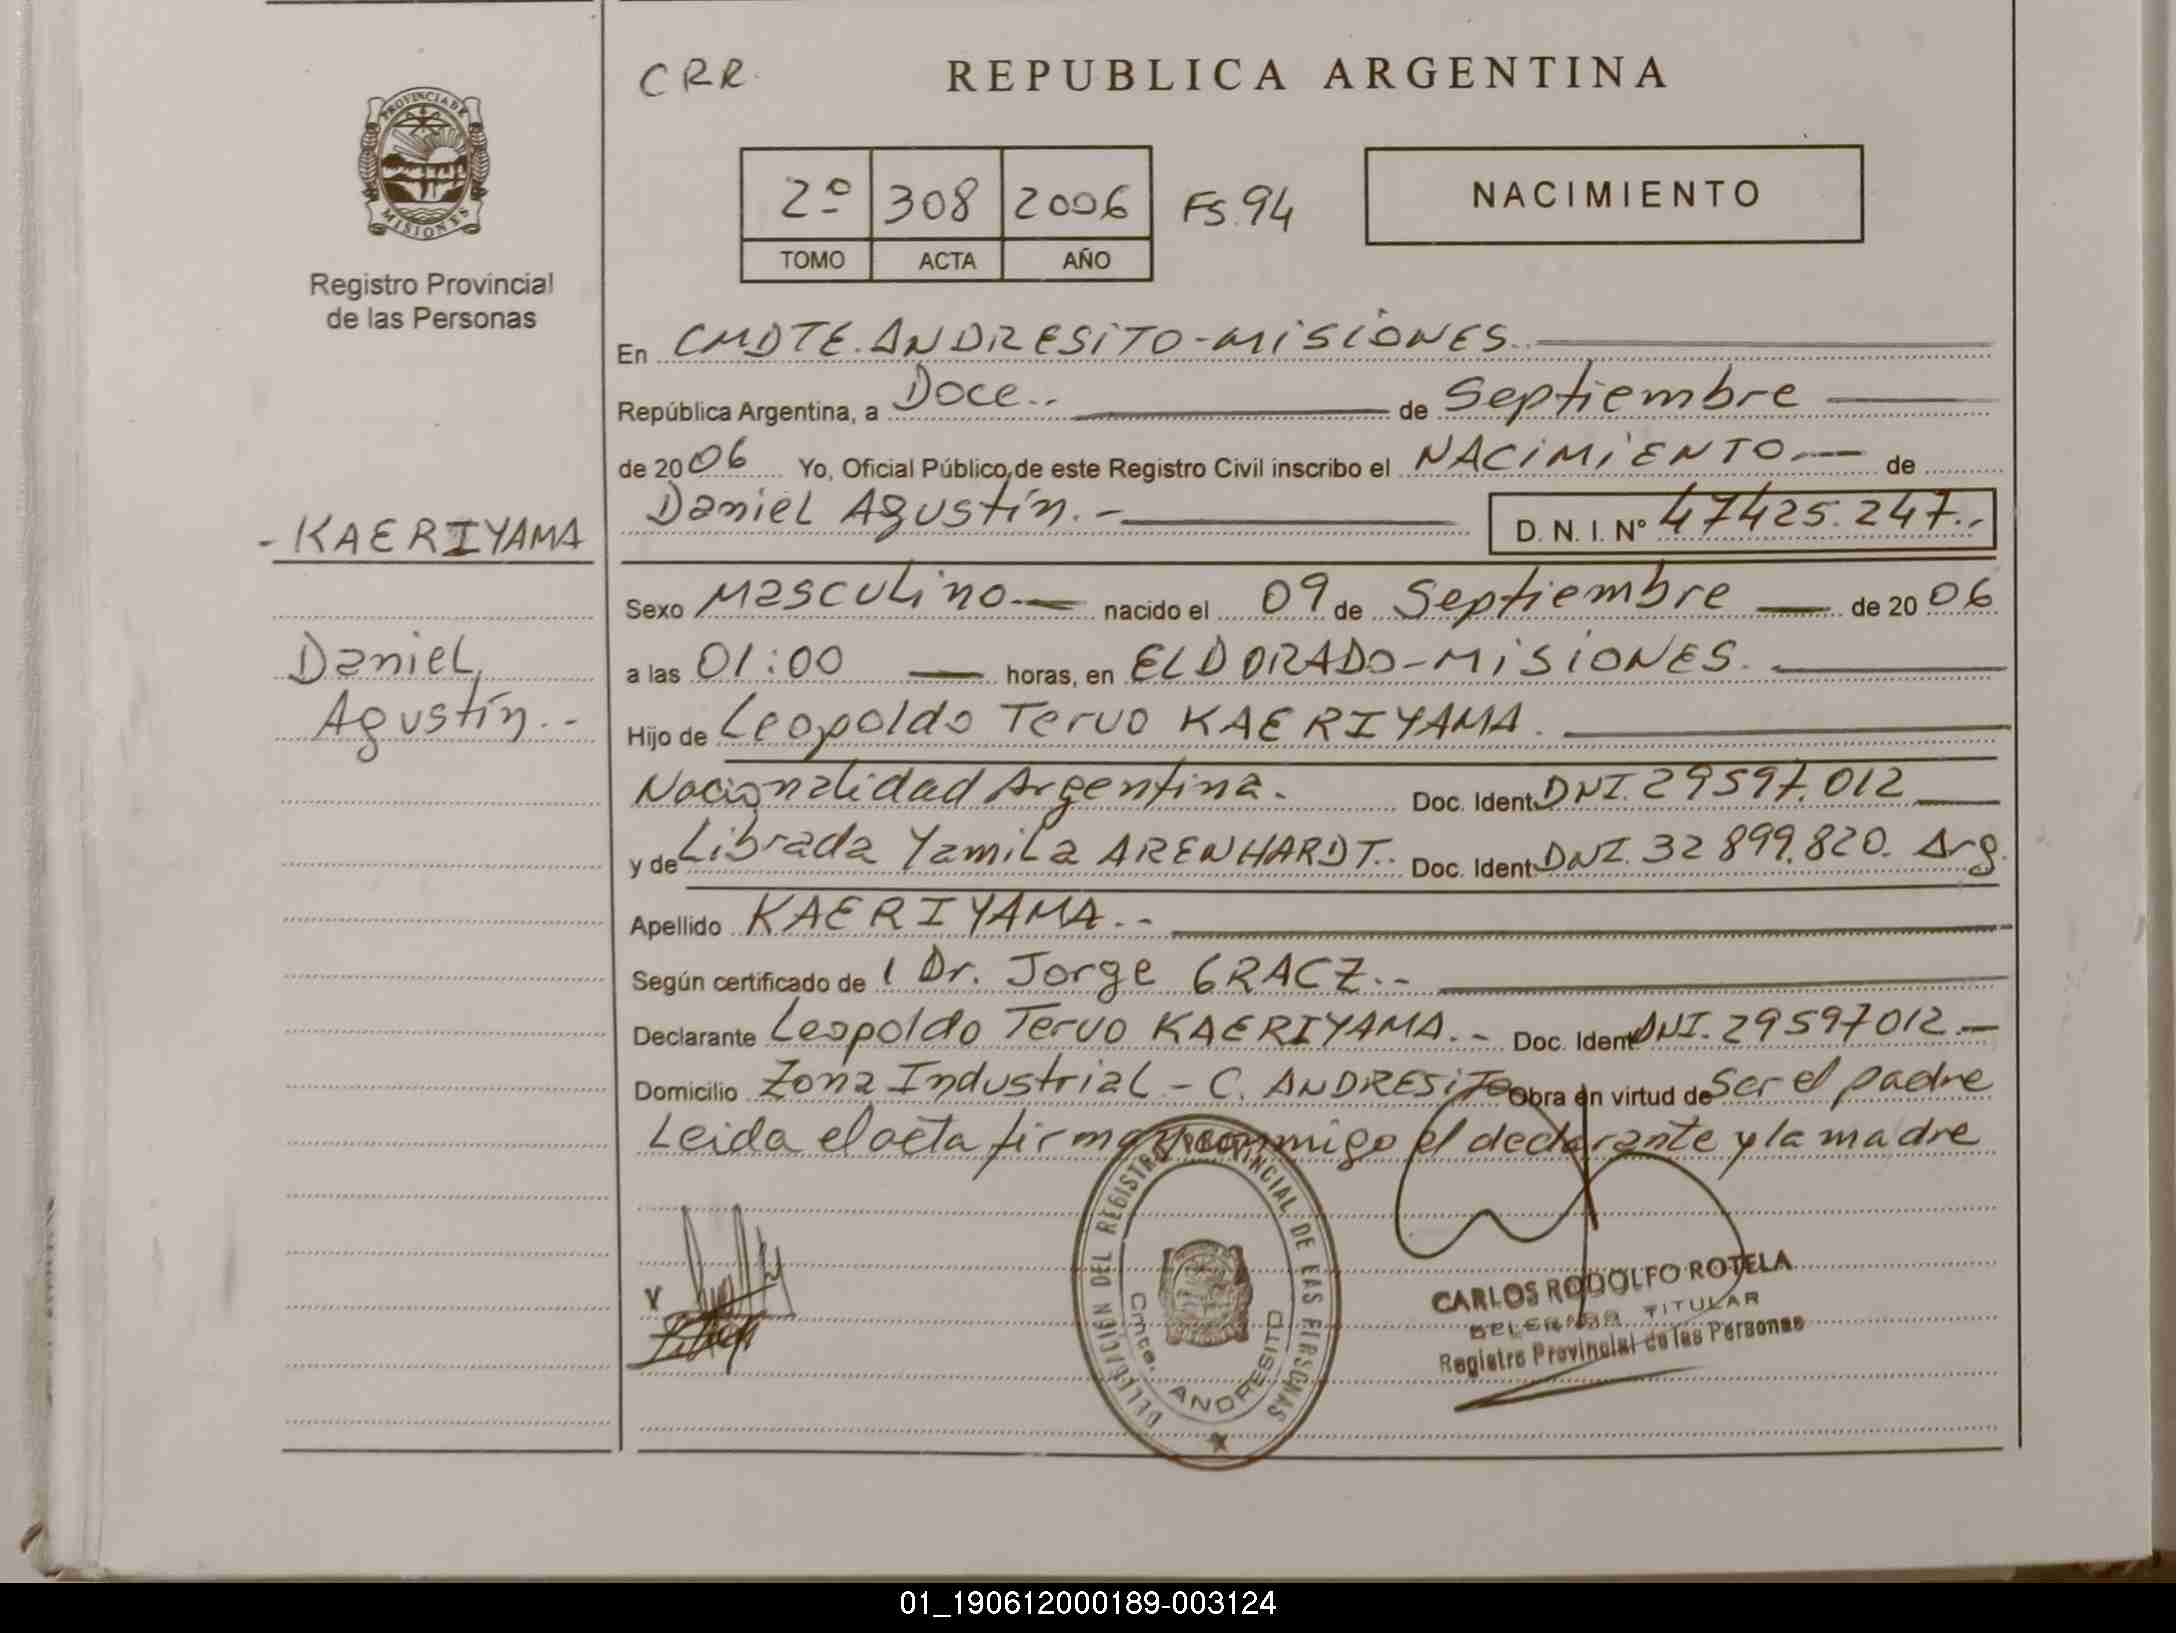 CRR.
REPUBLICA ARGENTINA
PROVINCIA DE
MISIONES
Registro Provincial
de las Personas
2º 308 2006 FS. 94
TOMO ACTA AÑO
NACIMIENTO
En CMDTE. ANDRESITO - MISIONES.
República Argentina, a Doce.. de Septiembre
de 2006 Yo, Oficial Público de este Registro Civil inscribo el NACIMIENTO.- de
Daniel Agustín.- D. N. I. N° 47425.247.-
- KAERIYAMA
Daniel
Agustín.-
Sexo Masculino.- nacido el 09 de Septiembre de 2006
a las 01:00 horas, en ELDORADO - MISIONES.
Hijo de Leopoldo Teruo KAERIYAMA.
Nacionalidad Argentina. Doc. Ident DNI. 29597.012
y de Librada Yamila ARENHARDT.. Doc. Ident DNI. 32 899.820. Arg.
Apellido KAERIYAMA.-
Según certificado de Dr. Jorge GRACZ.-
Declarante Leopoldo Teruo KAERIYAMA.- Doc. Ident DNI. 29597012.-
Domicilio Zona Industrial - C. ANDRESITO Obra en virtud de Ser el padre
Leida el acta firman conmigo el declarante y la madre
DELEGACIÓN DEL REGISTRO PROVINCIAL DE LAS PERSONAS
Cmte. ANDRESITO
CARLOS RODOLFO ROTELA
DELEGADO TITULAR
Registro Provincial de las Personas
01_190612000189-003124